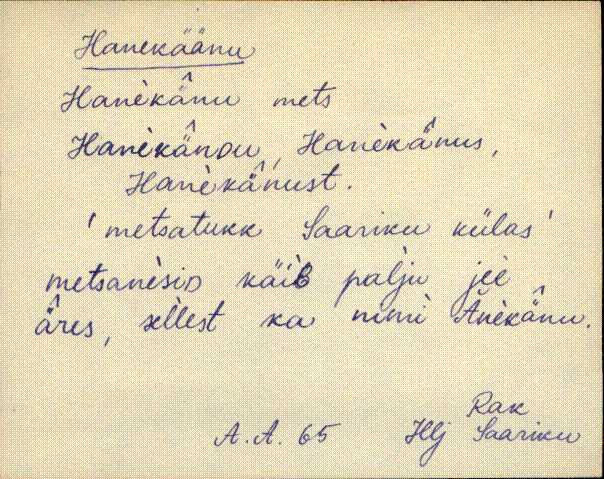 Hanekäänu
Hanèkä̂nu mets
Hanèkä̂nDu, Hanèkä̂nus,
Hanèkä̂nust.
'metsatukk Saariku külas'
metsanèsiD käiB palju jèè
ä̂res, sèllest ka nimì Ànèkä̂nu.
Rak
A. A. 65 Hlj Saariku